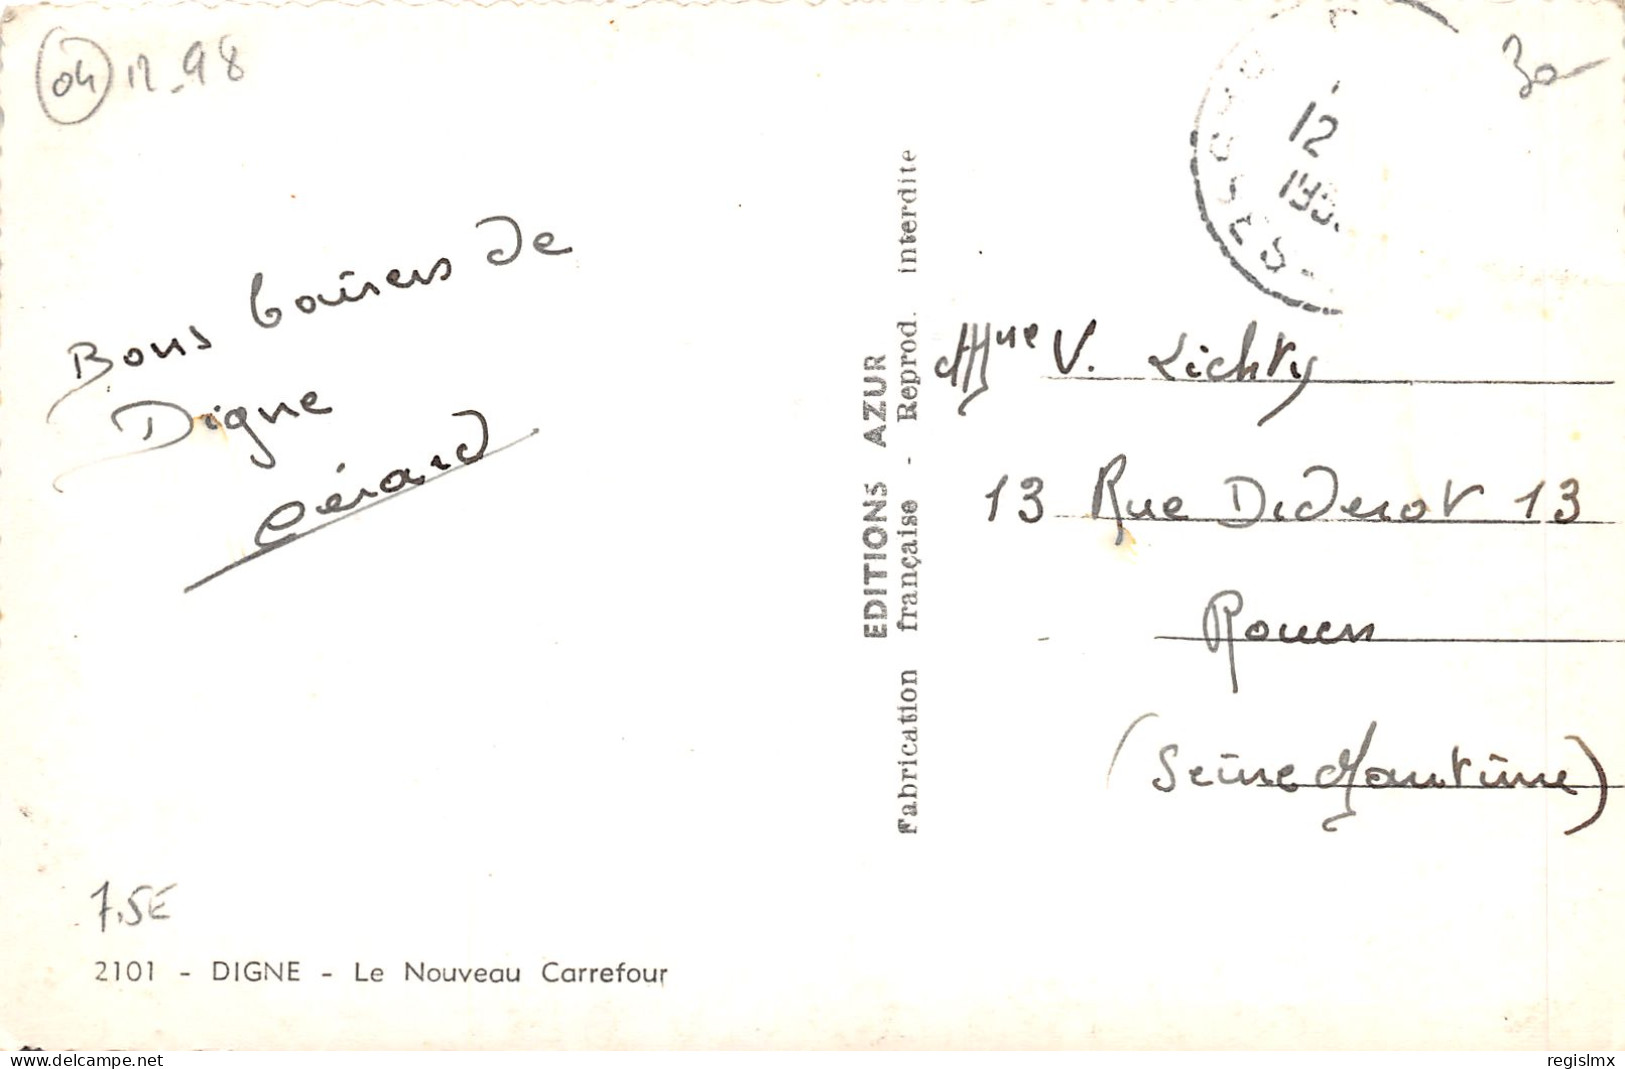 04 12-98
30
12
Bons baisers de
Digne
Gérard
EDITIONS AZUR
Fabrication française - Reprod. interdite
Mme V. Lichty
13 Rue Diderot 13
Rouen
(Seine Maritime)
7,5€
2101 - DIGNE - Le Nouveau Carrefour
delcampe.net
regislmx